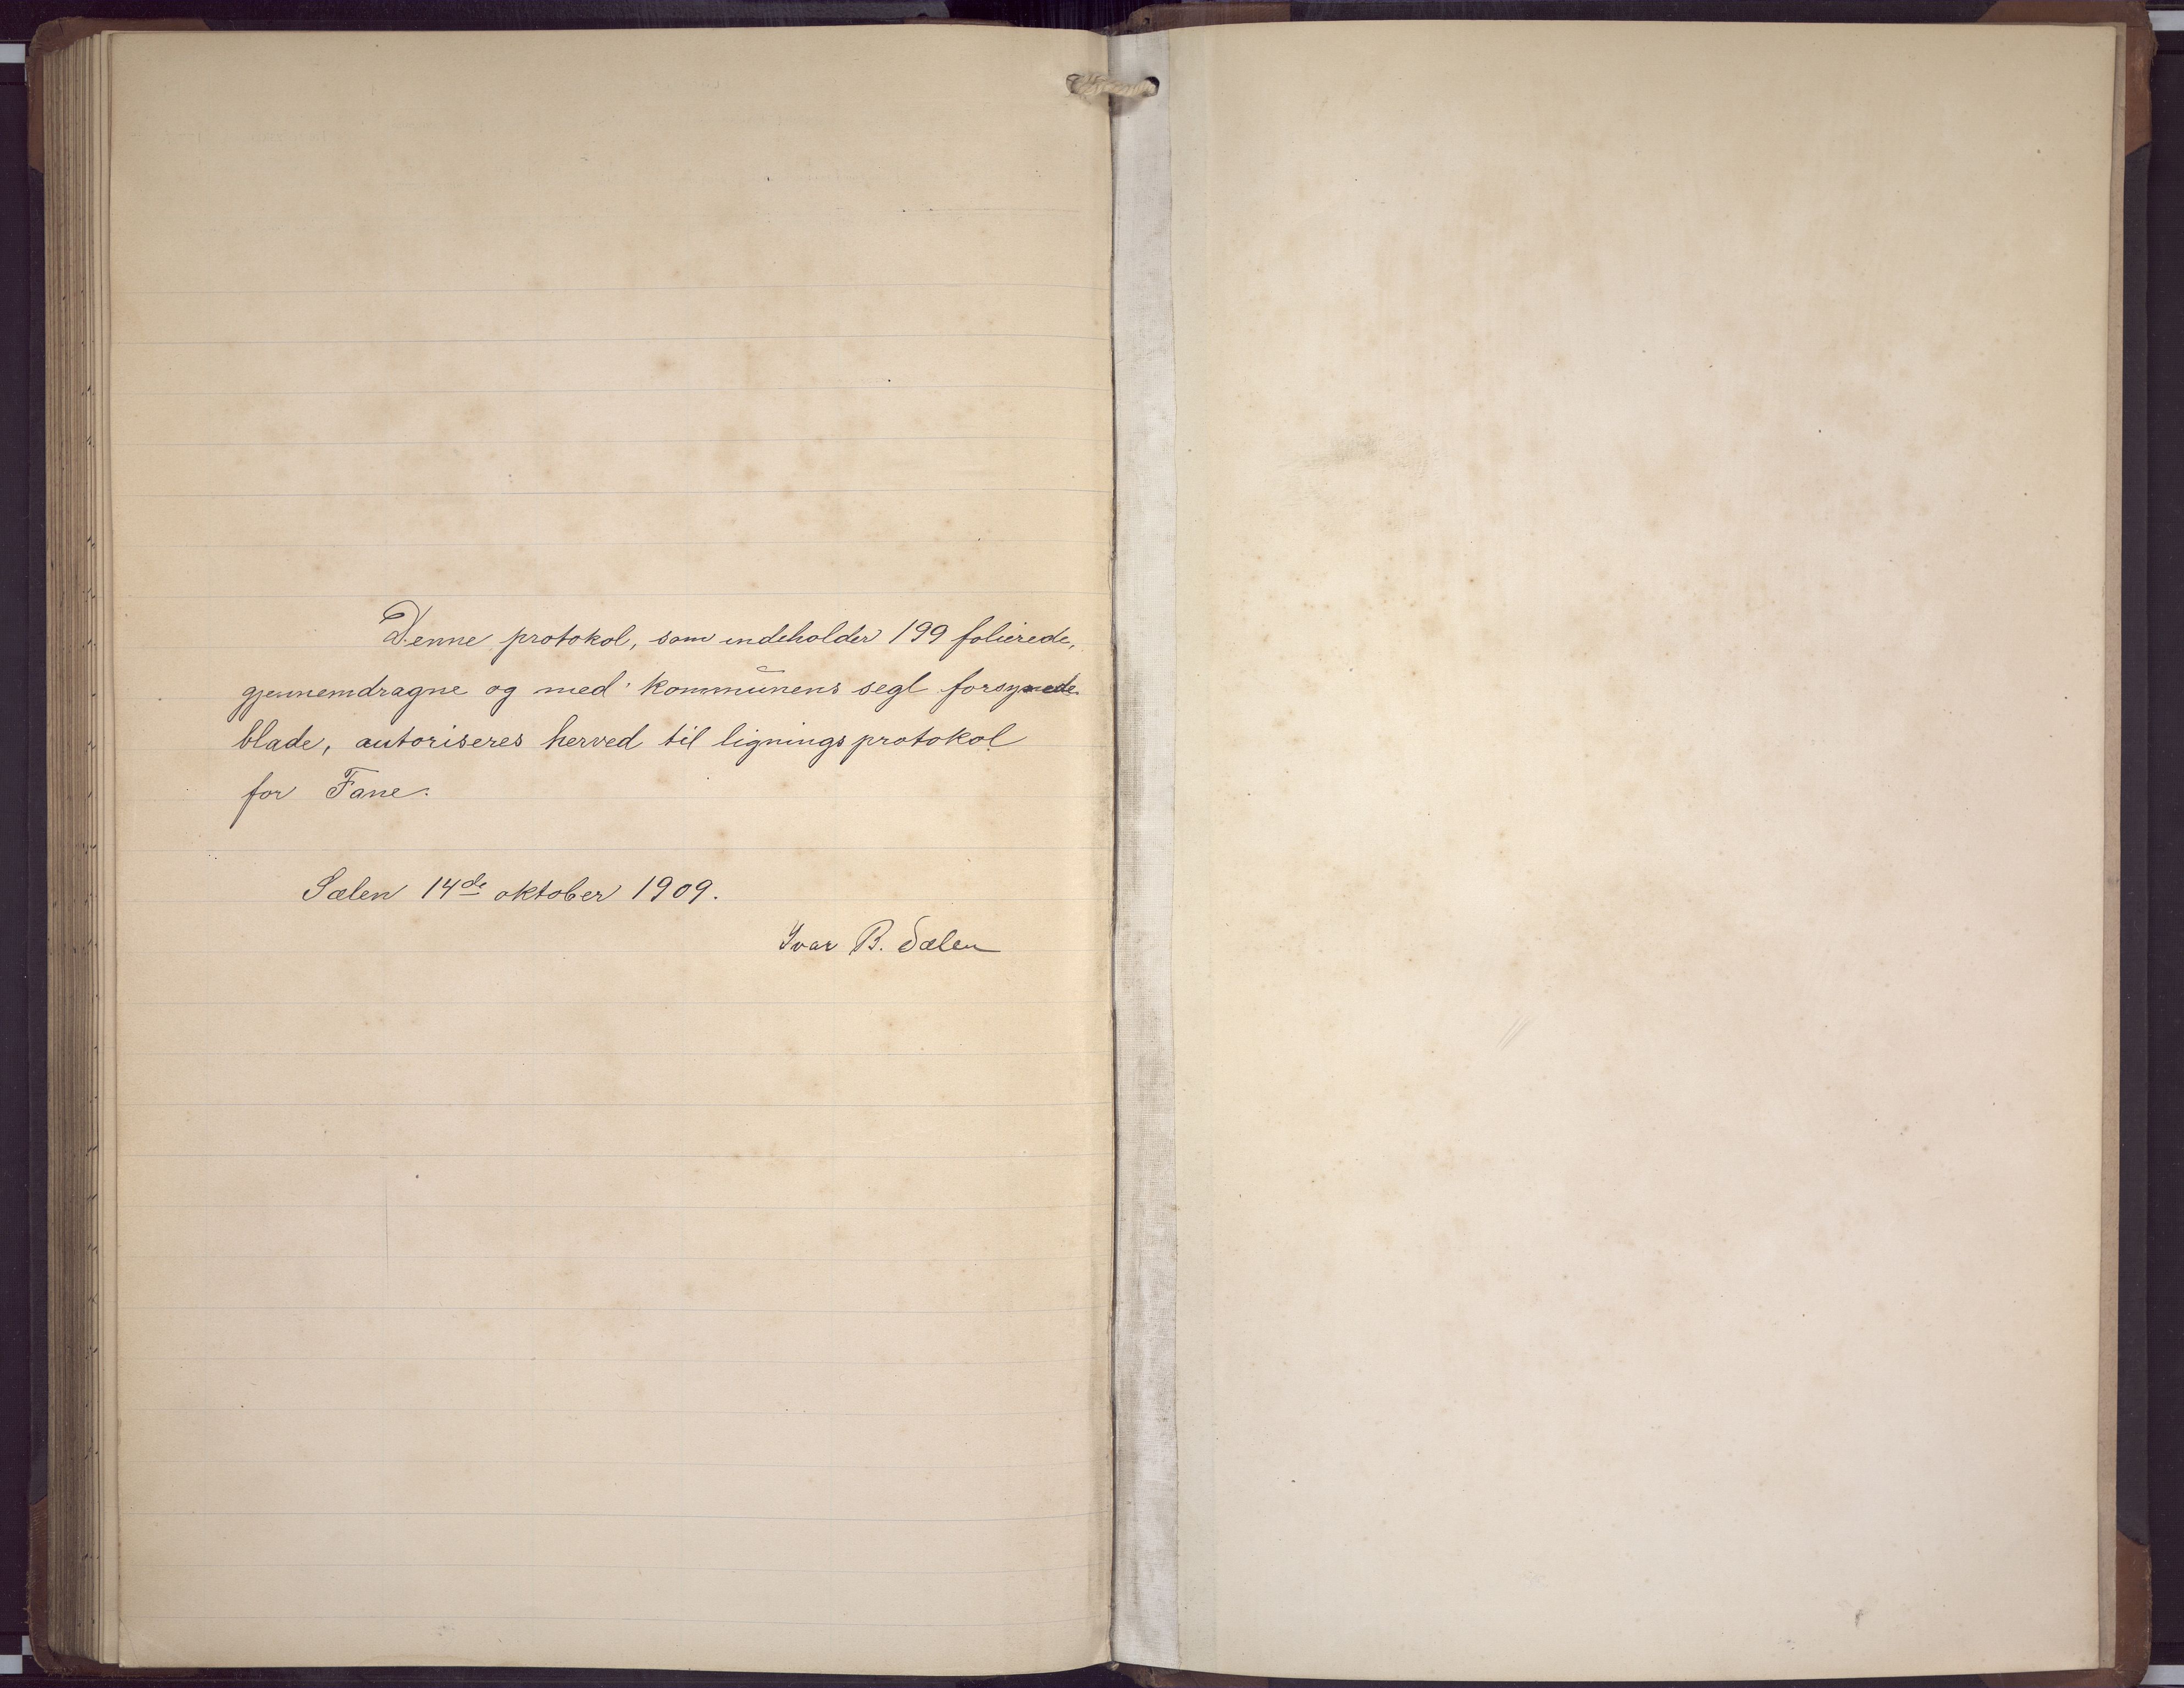 Denne protokol, som indeholder 199 folierede,
gjennemdragne og med kommunens segl forsynede
blade, autoriseres herved til ligningsprotokol
for Fane.
Sælen 14de oktober 1909.
Ivar B. Sælen